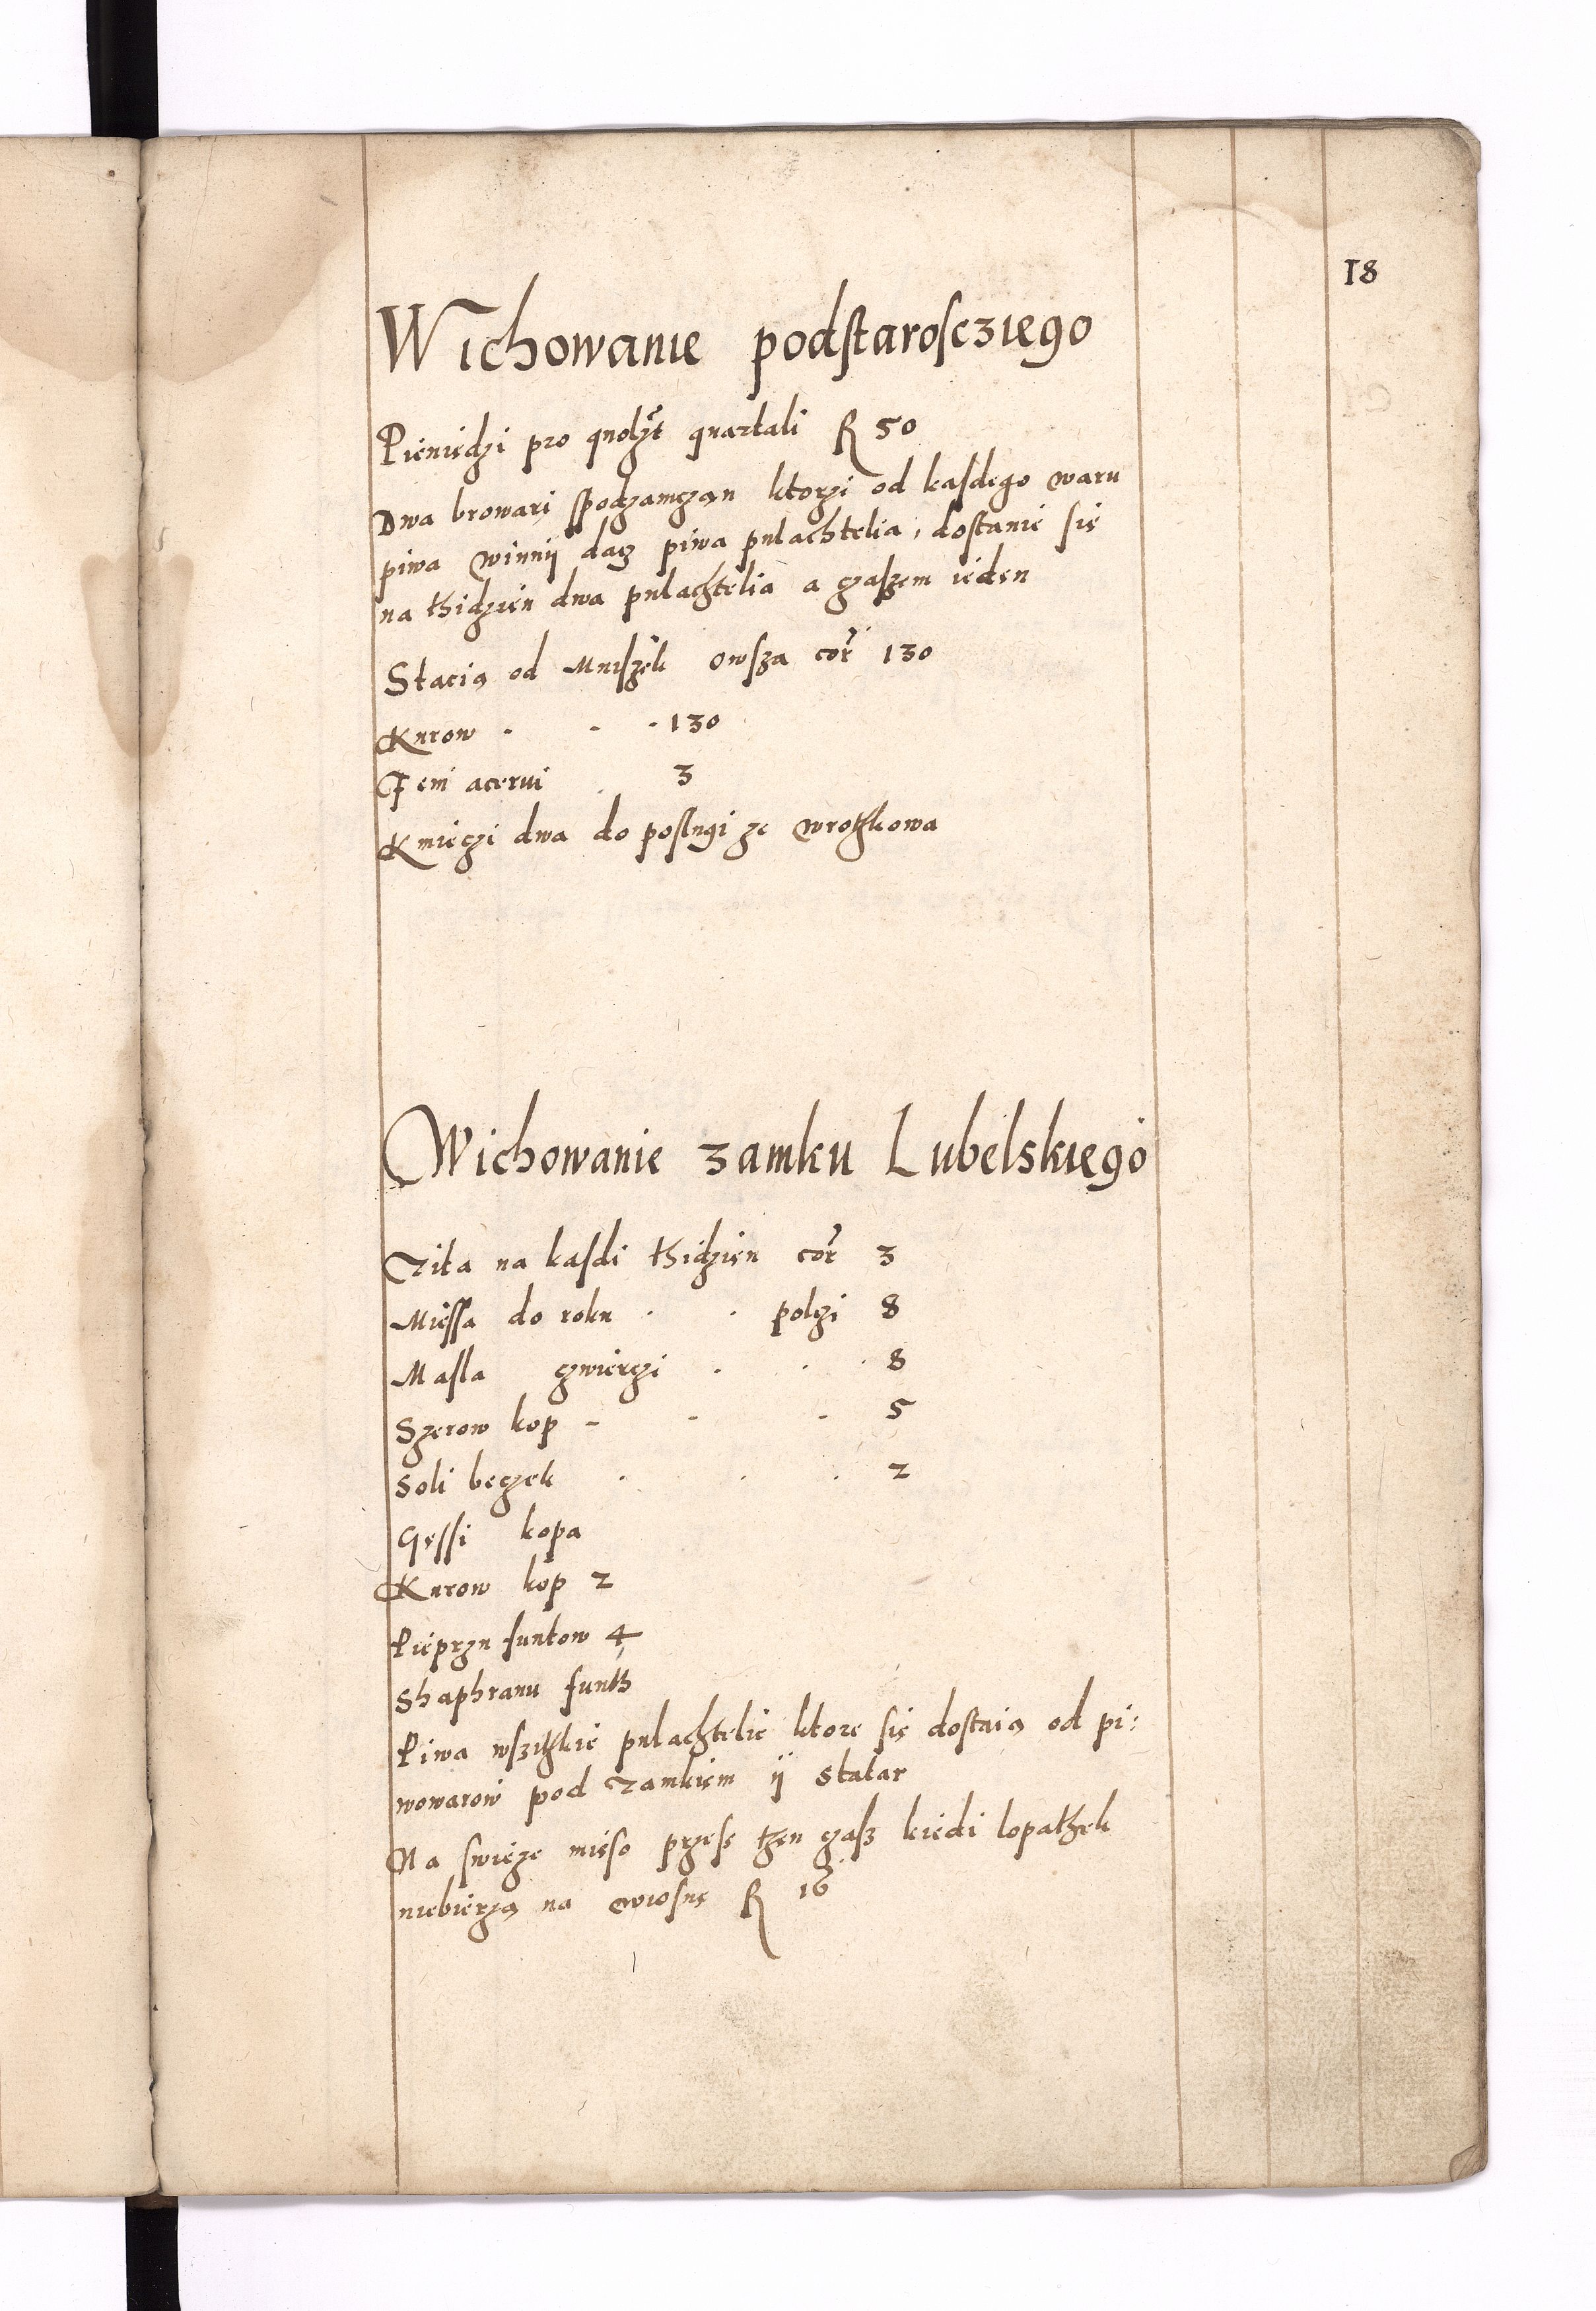 18
Wichowanie podstarosczięgo
Pieniędzi pro quolzt quartali R 50
Dwa browari spodzamczan ktorzi od kasdego waru
piwa winnij dacz piwa pulachtelia, dostanie się
na thidzien dwa pulachtelia a czassem ieden
Stacią od Mniszek owsza cor 130
Kurow . - . 130
Feni acervi . 3
Kmieczi dwa do poslugi ze wrotkowa
Wichowanie zamku Lubelskiego
Zita na kasdi thidzien cor 3
Miessa do roku . . polczi 8
Masla czwierczi . . . 8
Szerow kop - - - 5
Soli beczek . . . 2
Gęssi kopa
Kurow kop 2
Pieprzu funtow 4
Shaphranu funth
Piwa wszitkie pulachtelie ktore się dostaią od pi:
wowarow pod zamkiem ij Statar
Na swieze mięso przesz then czasz kiedi lopathek
niebierzą na wiosnę R 16